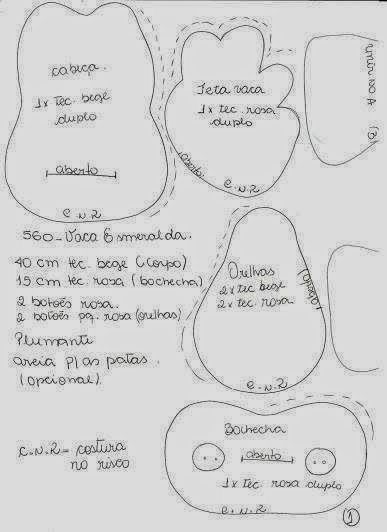 cabeça.
1x tec. bege
duplo
aberto
C.N.R
Teta vaca
1x tec. rosa
duplo
aberto
C.N.R
560 - Vaca Esmeralda.
40 cm tec. bege (corpo)
15 cm tec. rosa (bochecha)
2 botões rosa.
2 botões pq. rosa (orelhas)
Plumante
areia p/ as patas.
(opcional).
Orelhas
2x tec bege
2x tec. rosa.
C.N.R
C.N.R = costura
no risco
Bochecha
aberto
1x tec. rosa duplo
C.N.R
1